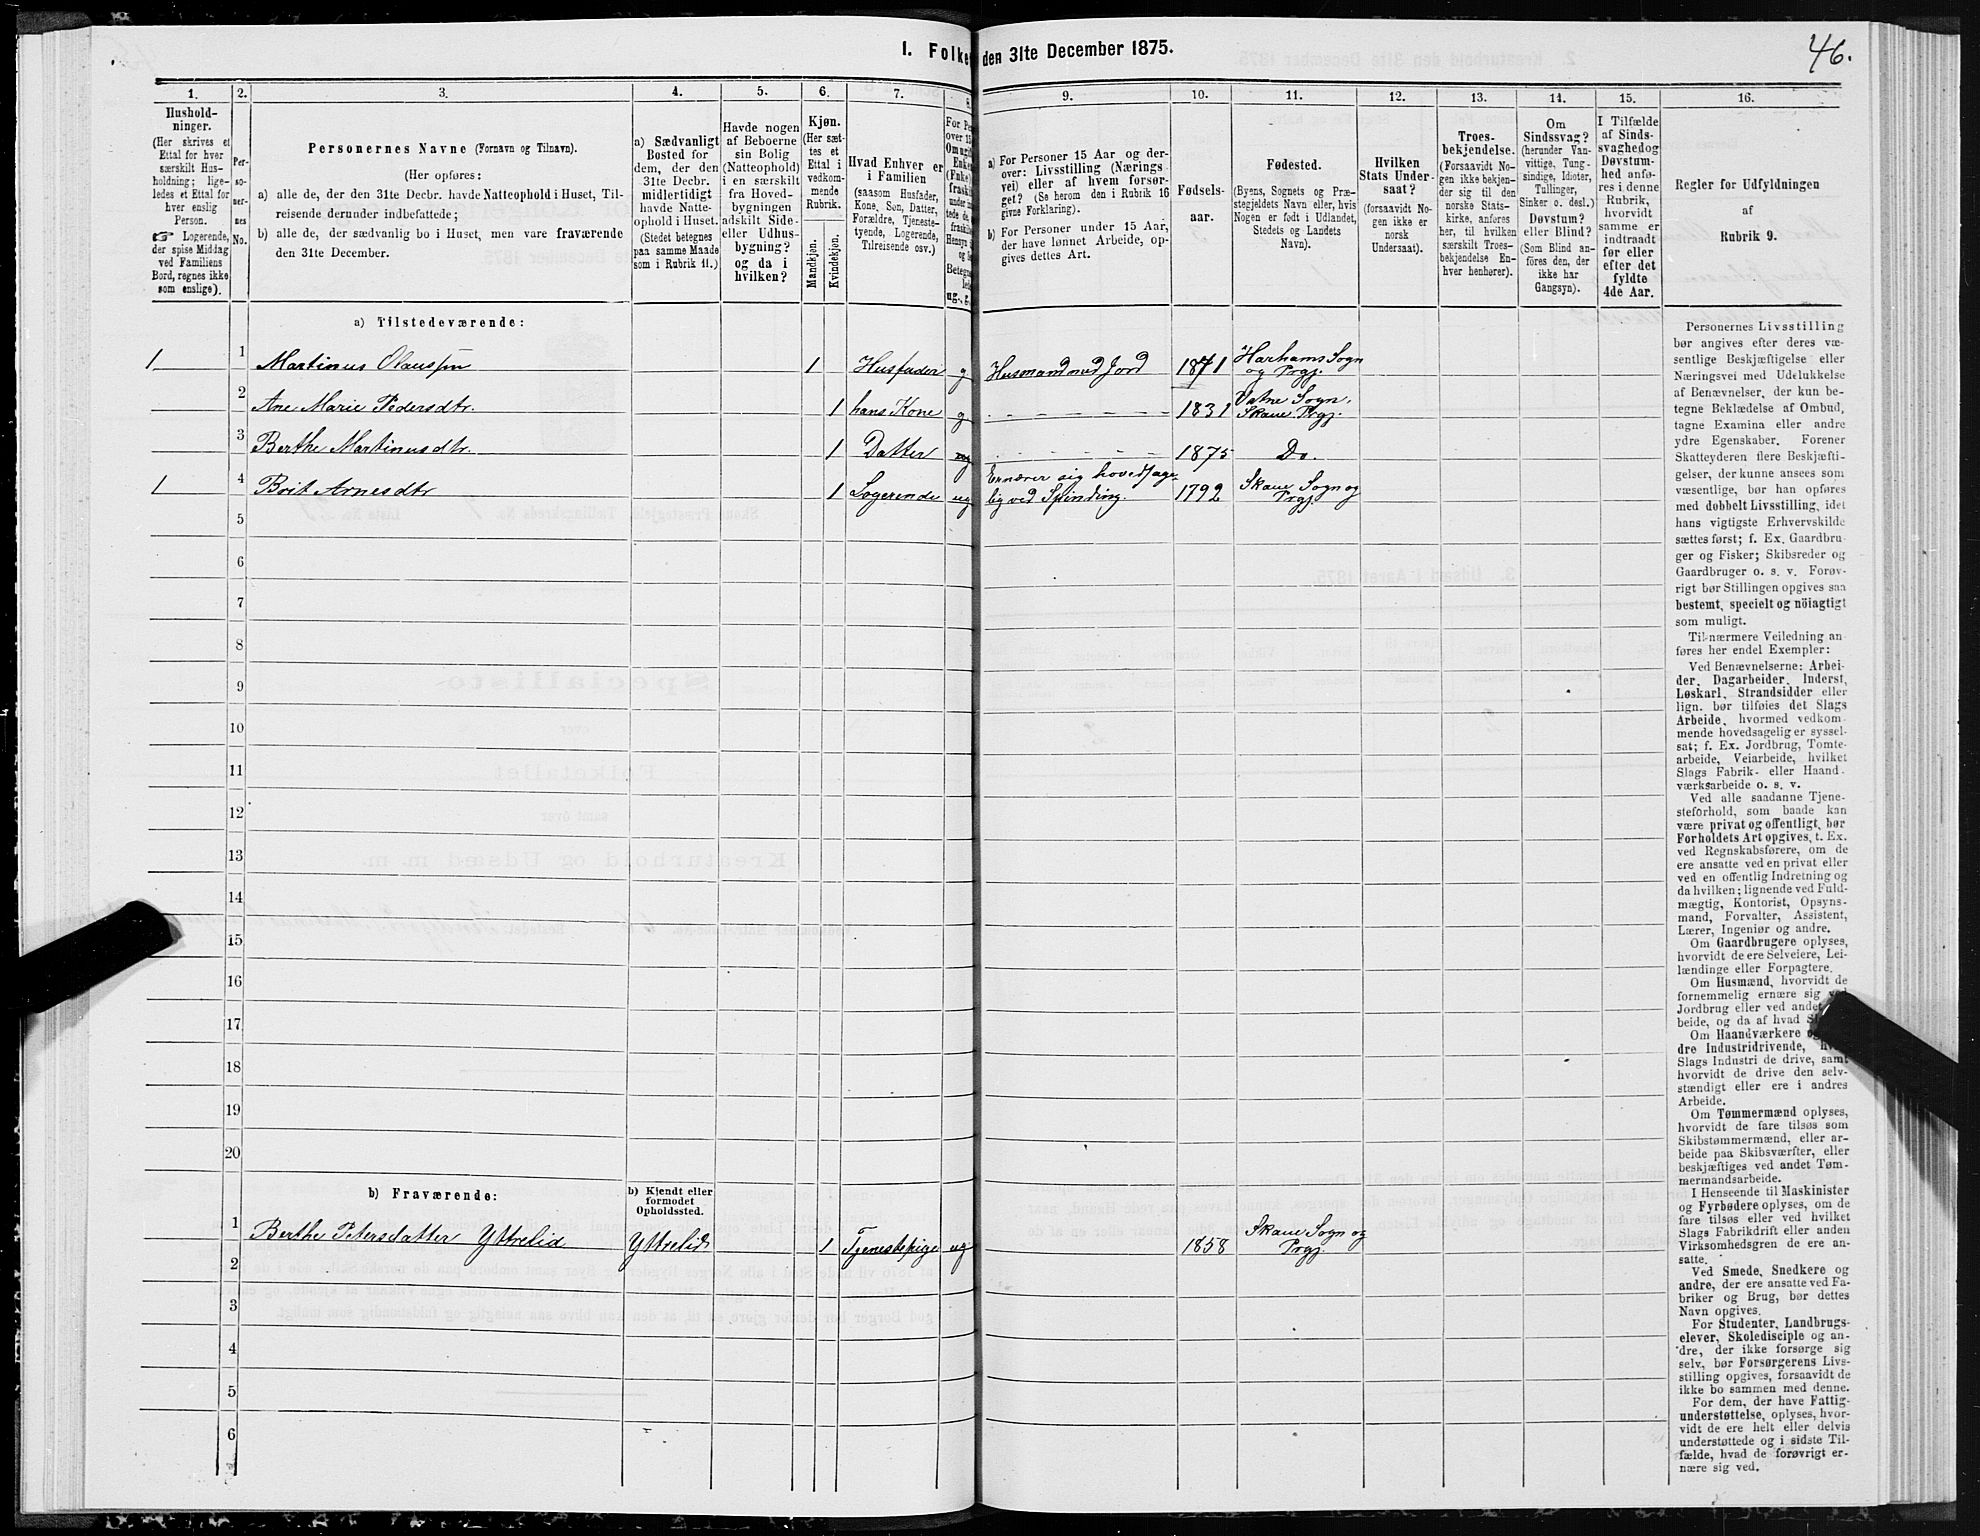 I. Folke den 31te December 1875.
46.
1.
2.
3.
4.
5.
6.
7.
8.
9.
10.
11.
12.
13.
14.
15.
16.
Hushold-
ninger.
(Her skrives et
Ettal for hver
særskilt Hus-
holdning; lige-
ledes et Ettal for
hver enslig
Person.
☞ Logerende,
der spise Middag
ved Familiens
Bord, regnes ikke
som enslige).
Per-
so-
ner-
nes
No.
Personernes Navne (Fornavn og Tilnavn).
(Her opføres:
a) alle de, der den 31te Decbr. havde Natteophold i Huset, Til-
reisende derunder indbefattede;
b) alle de, der sædvanlig bo i Huset, men vare fraværende
den 31te December.
a) Sædvanligt
Bosted for
dem, der den
31te Decbr.
midlertidigt
havde Natte-
ophold i Huset.
(Stedet betegnes
paa samme Maade
som i Rubrik 11.)
Havde nogen
af Beboerne
sin Bolig
(Natteophold)
i en særskilt
fra Hoved-
bygningen
adskilt Side-
eller Udhus-
bygning?
og da i
hvilken?
Kjøn.
(Her sæt-
tes et
Ettal i
vedkom-
mende
Rubrik.
Mandkjøn.
Kvindekjøn.
Hvad Enhver er
i Familien
(saasom Husfader,
Kone, Søn, Datter,
Forældre, Tjeneste-
tyende, Logerende,
Tilreisende osv.)
For Pe
over 15
Enk
(Fuke
frask
og
Betegn
ug., g.
a) For Personer 15 Aar og der-
over: Livsstilling (Nærings-
vei) eller af hvem forsør-
get? (Se herom den i Rubrik 16
givne Forklaring).
b) For Personer under 15 Aar,
der have lønnet Arbeide, op-
gives dettes Art.
Fødsels-
aar.
Fødested.
(Byens, Sognets og Præ-
stegjeldets Navn eller, hvis
Nogen er født i Udlandet,
Stedets og Landets
Navn).
Hvilken
Stats Under-
saat?
(forsaavidt No-
gen ikke er
norsk
Undersaat).
Troes-
bekjendelse.
(Forsaavidt No-
gen ikke bekjen-
der sig til den
norske Stats-
kirke, anføres
her, til hvilken
særskilt Troes-
bekjendelse En-
hver henhører).
Om
Sindssvag?
(herunder Van-
vittige, Tung-
sindige, Idioter,
Tullinger,
Sinker o. desl.)
Døvstum?
eller Blind?
(Som Blind an-
føres den, der
ikke har
Gangsyn).
I Tilfælde
af Sinds-
svaghed og
Døvstum-
hed anfø-
res i denne
Rubrik,
hvorvidt
samme er
indtraadt
før eller
efter det
fyldte
4de Aar.
Regler for Udfyldningen
af
Rubrik 9.
a) Tilstedeværende:
1 1 Martinus Olaussøn 1 Husfader g Husmand med Jord 1871 Harhams Sogn
og Prgj.
2 Ane Marie Pedersdtr. 1 hans Kone g 1831 Vatne Sogn,
Skaue Prgj.
3 Berthe Martinusdtr. 1 Datter 1875 Do.
1 4 Brit Arnesdtr 1 Logerende ug Ernærer sig hovedsage-
lig ved Spinding. 1792 Skaue Sogn og
Prgj.
5
6
7
8
9
10
11
12
13
14
15
16
17
18
19
20
b) Fraværende:
b) Kjendt eller
formodet
Opholdssted.
1 Berthe Petersdatter Yttrelid Yttrelid 1 Tjenestepige ug 1858 Skaue Sogn og
Prgj.
2
3
4
5
6
Personernes Livsstilling
bør angives efter deres væ-
sentlige Beskjæftigelse eller
Næringsvei med Udelukkelse
af Benævnelser, der kun be-
tegne Beklædelse af Ombud,
tagne Examina eller andre
ydre Egenskaber. Forener
Skatteyderen flere Beskjæfti-
gelser, der kunne ansees som
væsentlige, bør han opføres
med dobbelt Livsstilling, idet
hans vigtigste Erhvervskilde
sættes først; f. Ex. Gaardbru-
ger og Fisker; Skibsreder og
Gaardbruger o. s. v. Forøv-
rigt bør Stillingen opgives saa
bestemt, specielt og nöiagtigt
som muligt.
Til nærmere Veiledning an-
føres her endel Exempler:
Ved Benævnelserne: Arbei-
der, Dagarbeider, Inderst,
Løskarl, Strandsidder eller
lign. bør tilføies det Slags
Arbeide, hvormed vedkom-
mende hovedsagelig er syssel-
sat; f. Ex. Jordbrug, Tomte-
arbeide, Veiarbeide, hvilket
Slags Fabrik- eller Haand-
værksarbeide o. s. v.
Ved alle saadanne Tjene-
steforhold, som baade kan
være privat og offentligt, bør
Forholdets Art opgives, t. Ex.
ved Regnskabsførere, om de
ere ansatte ved en privat eller
ved en offentlig Indretning og
da hvilken; lignende ved Fuld-
mægtig, Kontorist, Opsyns-
mand, Forvalter, Assistent,
Lærer, Ingeniør og andre.
Om Gaardbrugere oplyses,
hvorvidt de ere Selveiere, Lei-
lændinge eller Forpagtere.
Om Husmænd, hvorvidt de
fornemmelig ernære sig ved
Jordbrug eller ved andet
beide, og da af hvad
Om Haandværkere
dre Industridrivende,
Slags Industri de drive, samt
hvorvidt de drive den selv-
stændigt eller ere i andres
Arbeide.
Om Tømmermænd oplyses,
hvorvidt de fare tilsøs som
Skibstømmermænd, eller ar-
beide paa Skibsværfter, eller
beskjæftiges ved andet Tøm-
mermandsarbeide.
I Henseende til Maskinister
og Fyrbødere oplyses, om de
fare tilsøs eller ved hvilket
Slags Fabrikdrift eller anden
Virksomhedsgren de ere an-
satte.
Ved Smede, Snedkere og
andre, der ere ansatte ved Fa-
briker og Brug, bør dettes
Navn opgives.
For Studenter, Landbrugs-
elever, Skoledisciple og an-
dre, der ikke forsørge sig
selv, bør Forsørgerens Livs-
stilling opgives, forsaavidt de
ikke bo sammen med denne.
For dem, der have Fattig-
understøttelse, oplyses, hvor-
vidt de ere helt eller delvis
understøttede og i sidste Til-
fælde, hvad de forøvrigt er-
nære sig ved.